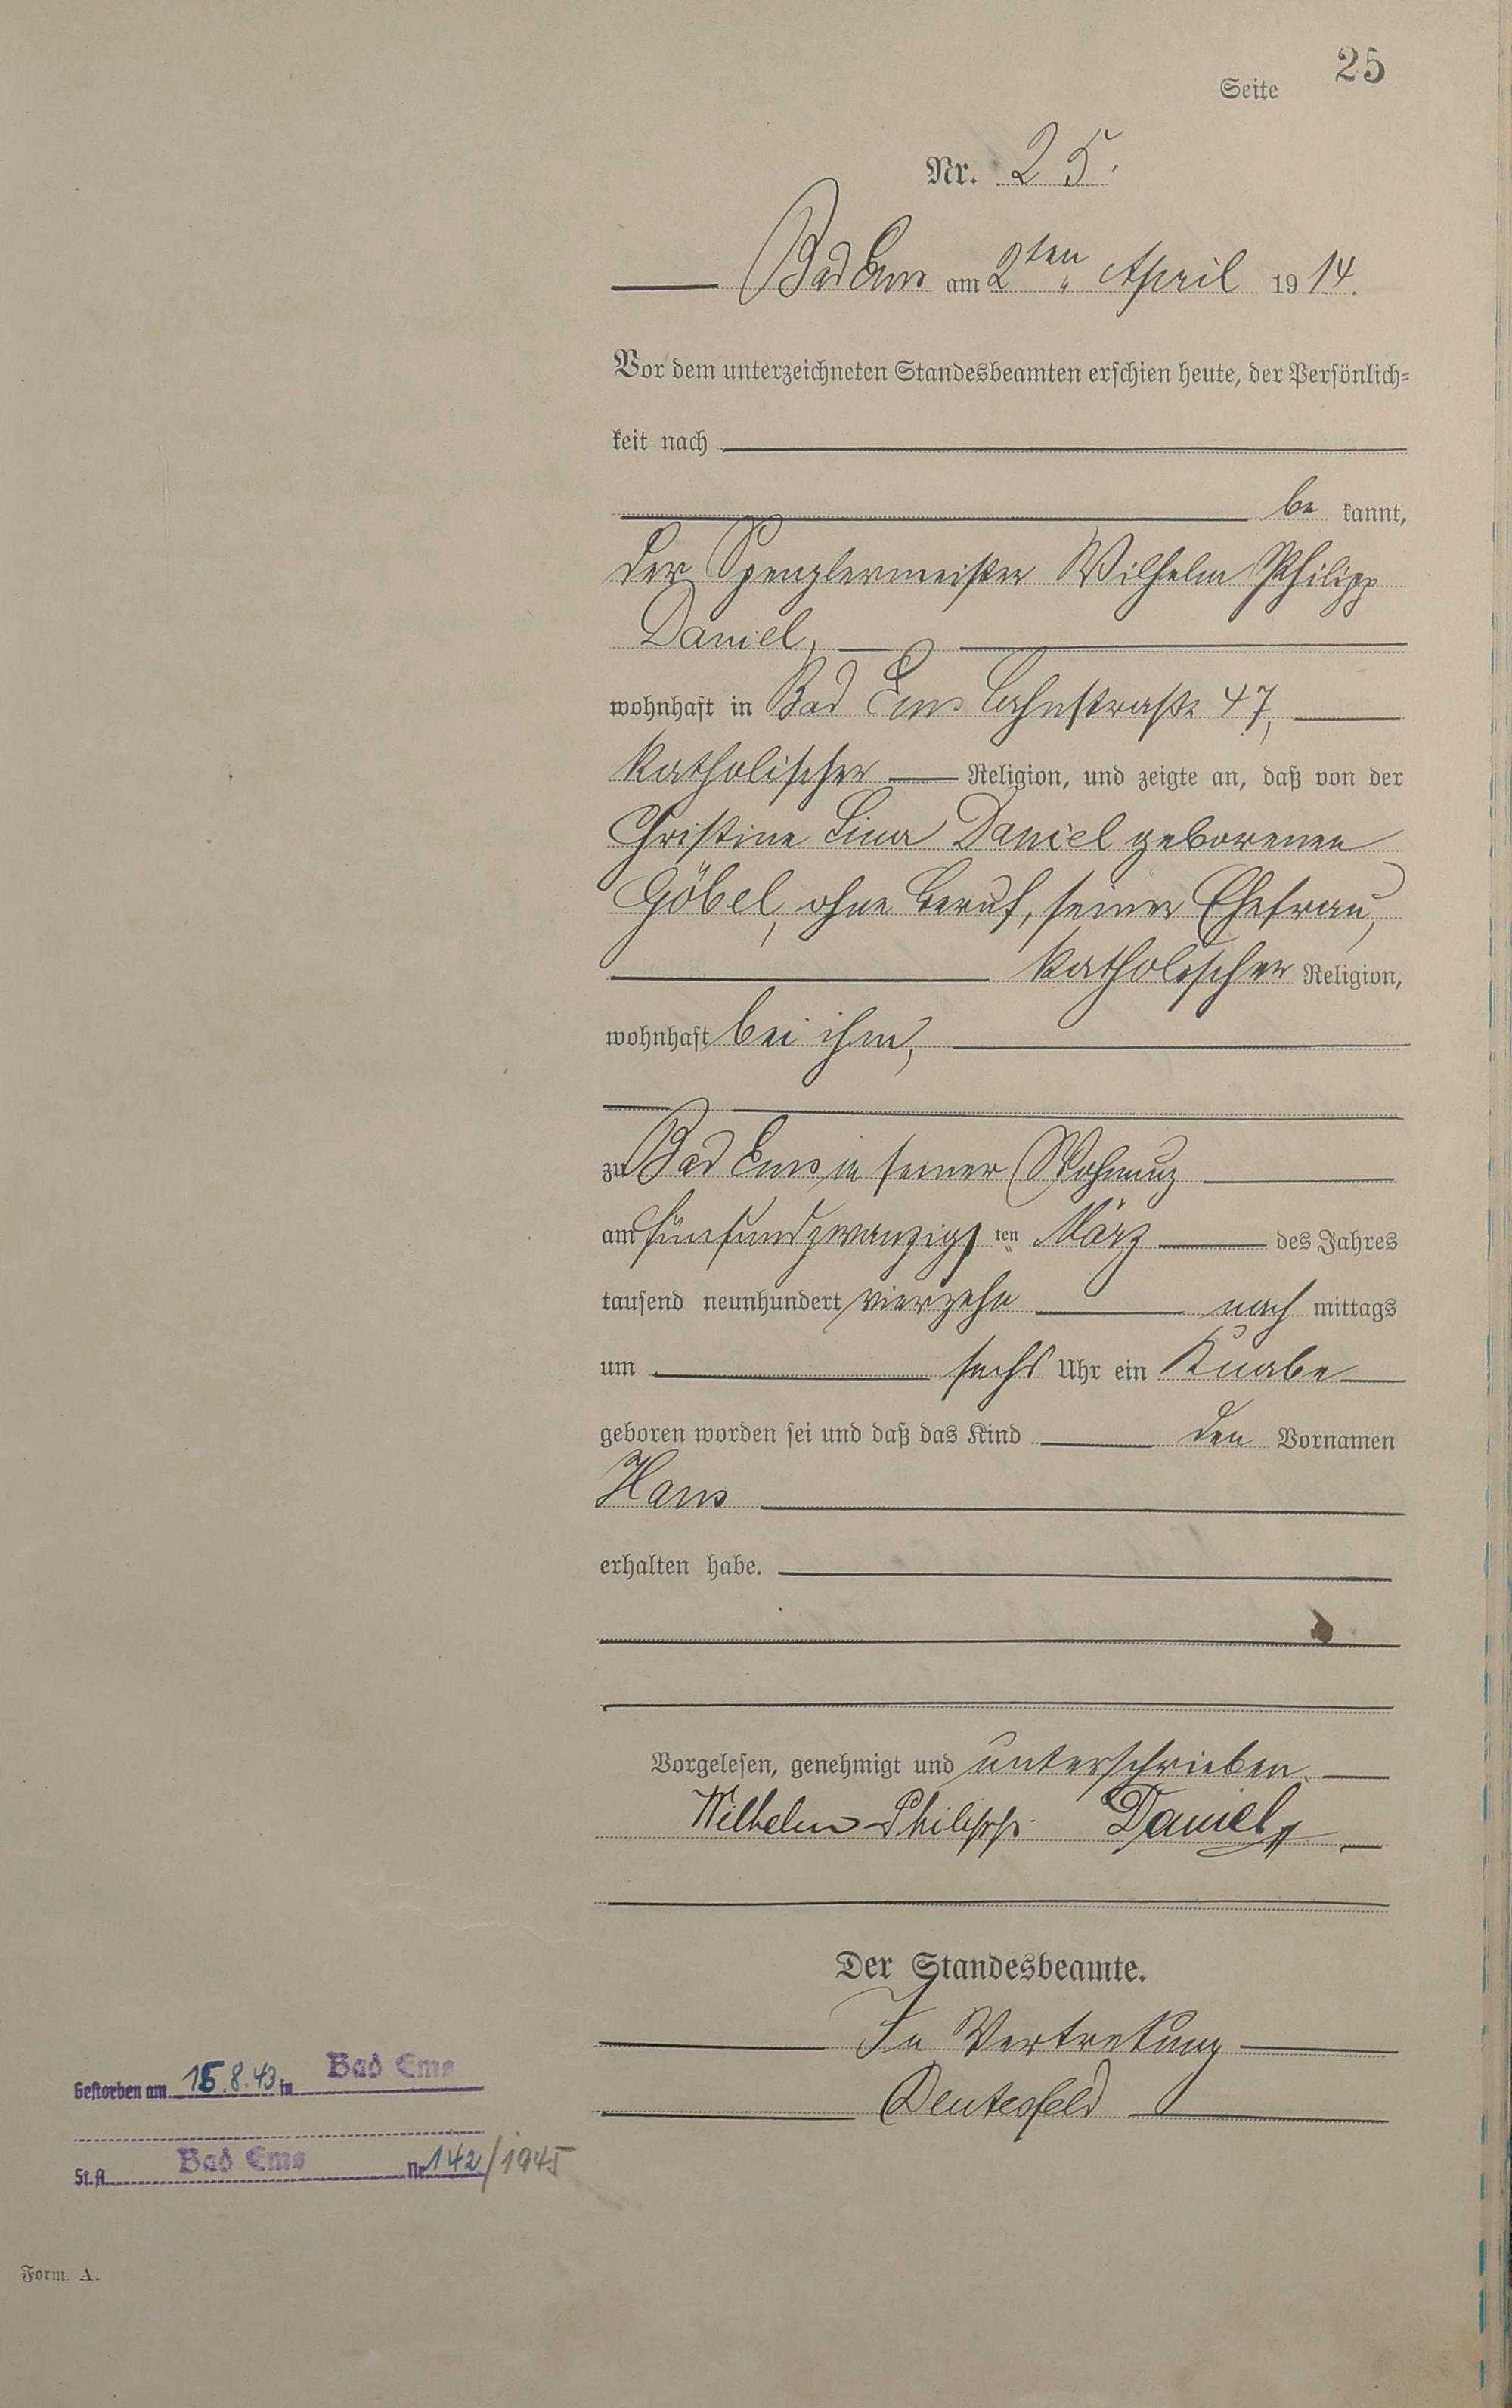 Seite 25
Nr. 25.
Bad Ems am 2ten April 1914.
Vor dem unterzeichneten Standesbeamten erschien heute, der Persönlich-
keit nach
be kannt,
der Spenglermeister Wilhelm Philipp
Daniel,
wohnhaft in Bad Ems Lahnstraße 47,
katholischer Religion, und zeigte an, daß von der
Christine Lina Daniel geborenen
Göbel, ohne Beruf, seiner Ehefrau,
katholischer Religion,
wohnhaft bei ihm,
zu Bad Ems in seiner Wohnung
am fünfundzwanzigsten März des Jahres
tausend neunhundert vierzehn nach mittags
um sechs Uhr ein Knabe
geboren worden sei und daß das Kind den Vornamen
Hans
erhalten habe.
Vorgelesen, genehmigt und unterschrieben.
Wilhelm Philipp Daniel
Der Standesbeamte.
In Vertretung
Deutesfeld
Gestorben am 15.8.43 in Bad Ems
St.A. Bad Ems Nr 142/1945
Form. A.